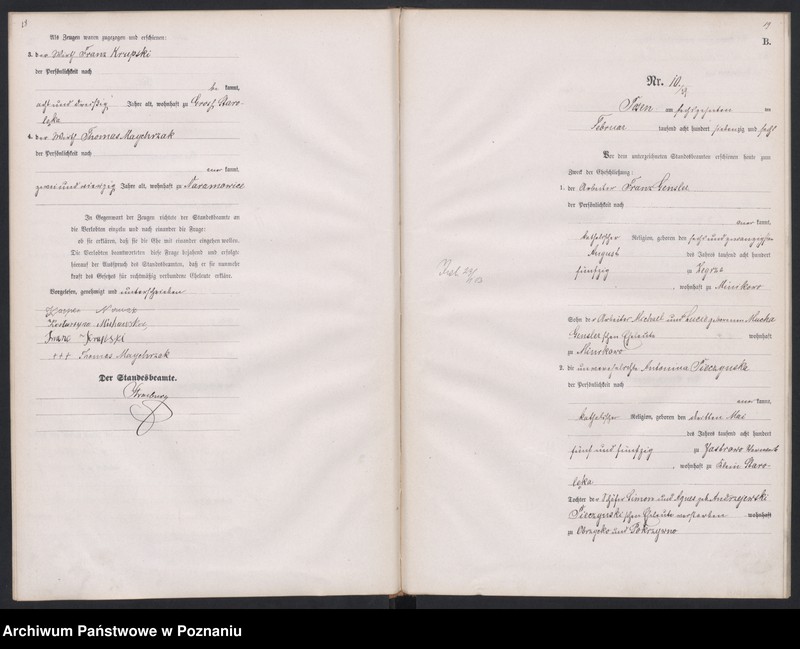 18
Als Zeugen waren zugezogen und erschienen:
3. der Wirth Franz Krupski
der Persönlichkeit nach
be kannt,
acht und dreißig Jahre alt, wohnhaft zu Groß Staro-
lęka
4. der Wirth Thomas Maychrzak
der Persönlichkeit nach
kannt,
zwei und vierzig Jahre alt, wohnhaft zu Naramowice
In Gegenwart der Zeugen richtete der Standesbeamte an
die Verlobten einzeln und nach einander die Frage:
ob sie erklären, daß sie die Ehe mit einander eingehen wollen.
Die Verlobten beantworteten diese Frage bejahend und erfolgte
hierauf der Ausspruch des Standesbeamten, daß er sie nunmehr
kraft des Gesetzes für rechtmäßig verbundene Eheleute erkläre.
Vorgelesen, genehmigt und unterschrieben
Nowak
Katarzyna
Franz Krupski
+++ Thomas Maychrzak
Der Standesbeamte.
19
B.
Nr. 10
Posen am sechszehnten ten
Februar tausend acht hundert siebenzig und sechs
Vor dem unterzeichneten Standesbeamten erschienen heute zum
Zweck der Eheschließung:
1. der Arbeiter Franz Gensler
der Persönlichkeit nach
kannt,
katholischer Religion, geboren den sechs und zwanzigsten
August des Jahres tausend acht hundert
fünfzig zu Zegrze
, wohnhaft zu Minikowo
Sohn der Arbeiter Michael und Lucie geborenen Mucha
Genslerschen Eheleute wohnhaft
zu Minikowo
2. die unverehelichte Antonina Pieczynska
der Persönlichkeit nach
kannt,
katholischer Religion, geboren den dritten Mai
des Jahres tausend acht hundert
fünf und fünfzig zu Jastrowo
, wohnhaft zu Klein Staro-
lęka
Tochter der Schäfer Simon und Agnes geb. Andrzejewski
Pieczynskischen Eheleute verstorben wohnhaft
zu Obrzycko und Pokrzywno
Archiwum Państwowe w Poznaniu